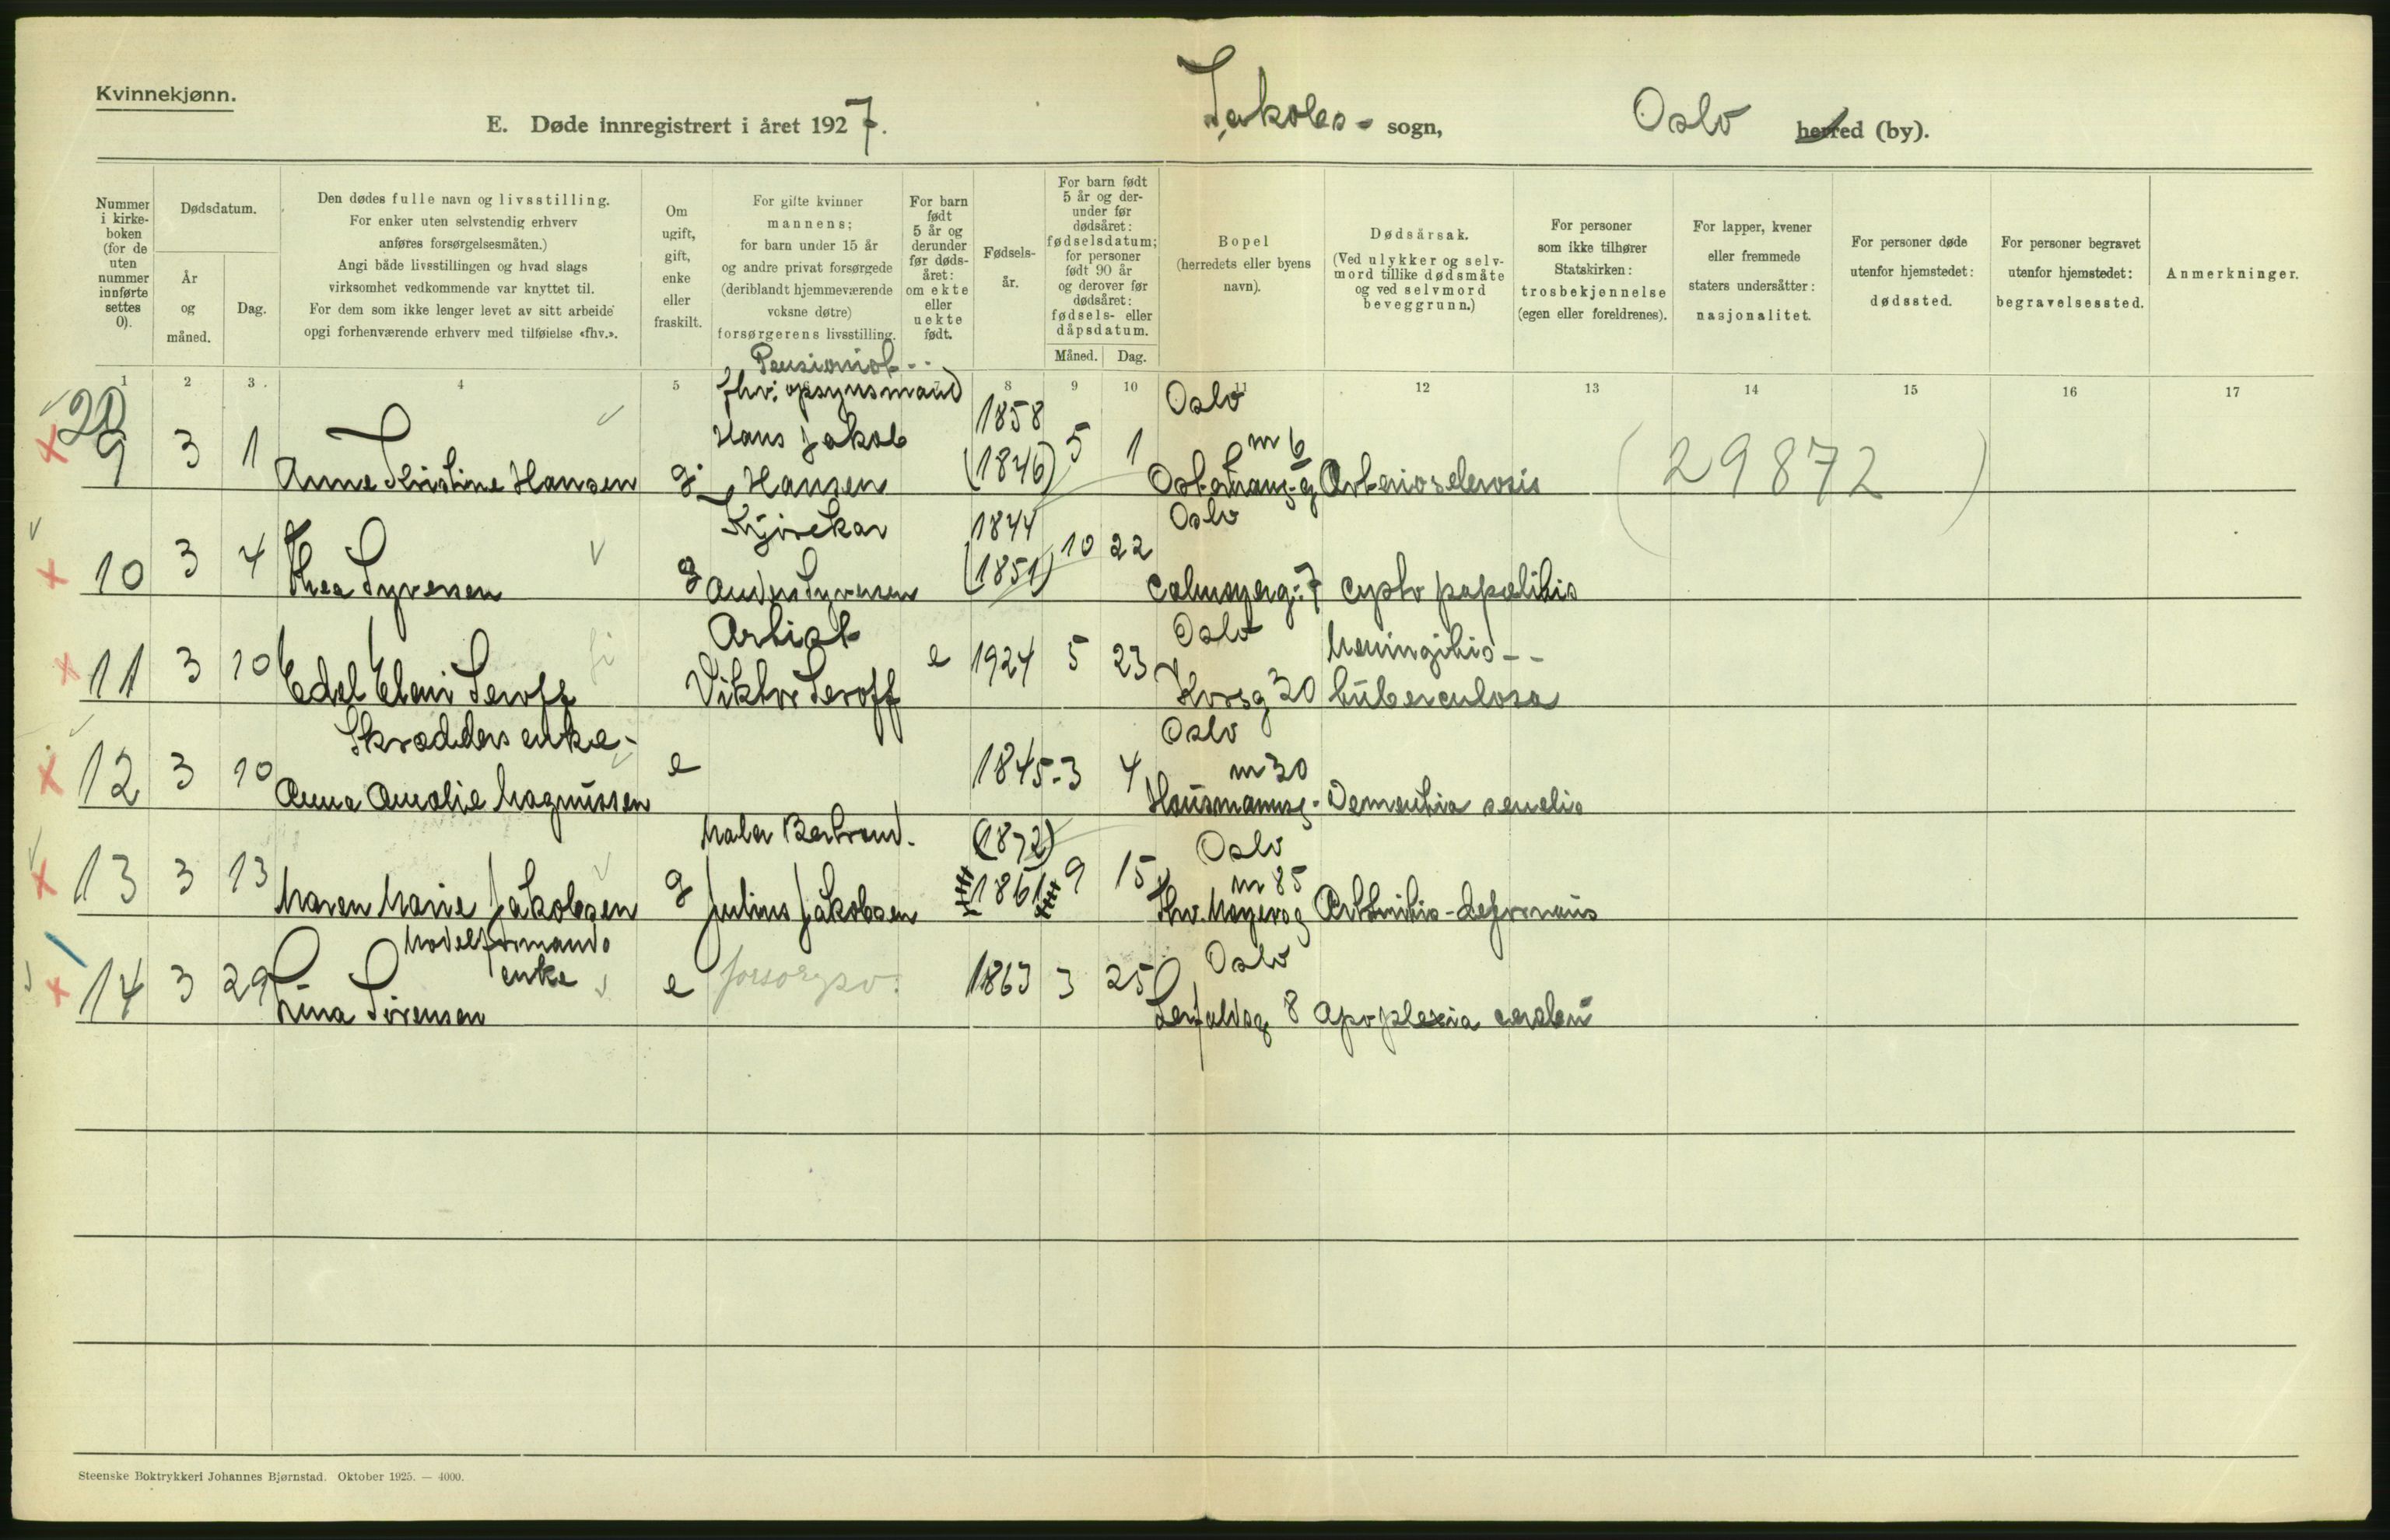 Kvinnekjønn.
E. Døde innregistrert i året 1927.
Jakobs - sogn,
Oslo herred (by).
Nummer i kirke- boken (for de uten nummer innførte settes 0).
Dødsdatum.
År og måned.
Dag.
Den dødes fulle navn og livsstilling.
For enker uten selvstendig erhverv
anføres forsørgelsesmåten.)
Angi både livsstillingen og hvad slags
virksomhet vedkommende var knyttet til.
For dem som ikke lenger levet av sitt arbeide
opgi forhenværende erhverv med tilføielse «fhv.».
Om ugift, gift, enke eller fraskilt.
For gifte kvinner
mannens;
for barn under 15 år
og andre privat forsørgede
(deriblandt hjemmeværende
voksne døtre)
forsørgerens livsstilling.
For barn født 5 år og derunder før døds- året: om ekte eller uekte født.
Fødsels- år.
For barn født 5 år og der- under før dødsåret: fødselsdatum; for personer født 90 år og derover før dødsåret: fødsels- eller dåpsdatum.
Måned. Dag.
Bopel
(herredets eller byens
navn).
Dødsårsak.
(Ved ulykker og selv-
mord tillike dødsmåte
og ved selvmord
beveggrunn.)
For personer
som ikke tilhører
Statskirken:
trosbekjennelse
(egen eller foreldrenes).
For lapper, kvener
eller fremmede
staters undersåtter:
nasjonalitet.
For personer døde
utenfor hjemstedet:
dødssted.
For personer begravet
utenfor hjemstedet:
begravelsessted.
Anmerkninger.
1 2 3 4 5 8 9 10 11 12 13 14 15 16 17
20
Pensionist
fhv: opsynsmand
Hans Jakob
Hansen
1858
(1846)
Oslo
nr 6
9 3 1 Anne Kristine Hansen g. 5 1 Arteriosclerosis (29872)
Kjørekar
1844
Oslo
10 3 4 Thea Syversen g Anders Syversen (1851) 10 22 Calmeyerg. 7 cysto
Artist
Oslo
Meningitis
11 3 10 Edel Viktor Seroff e 1924 5 23 Korsg 30 tuberculosa
Skrædders enke
Oslo
nr 30
12 3 10 Anna Amalie Magnussen e 1845 3 4 Hausmannsg. Dementia senilis
Maler
(1872)
Oslo
nr 85
13 3 13 Maren Marie Jakobsen g Julius Jakobsen 1861 9 15 Thv. Meyersg Arthritis - deformans
enke
forsørges
Oslo
14 3 29 Lina Sørensen e 1863 3 25 8 Apoplexia cerebri
Steenske Boktrykkeri Johannes Bjørnstad. Oktober 1925. — 4000.